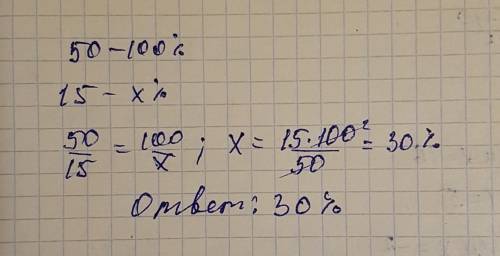 50 - 100%
15 - x%
50/15 = 100/x ; x = 15·100²/50 = 30.%
Ответ: 30%